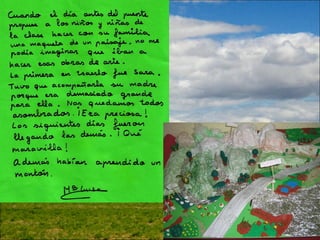 Cuando el día antes del puente
propuse a los niños y niñas de
la clase hacer con su familia
una maqueta de un paisaje, no me
podía imaginar que iban a
hacer esas obras de arte.
La primera en traerlo fue Sara.
Tuvo que acompañarla su madre
porque era demasiado grande
para ella. Nos quedamos todos
asombrados. ¡Era preciosa!
Los siguientes días fueron
llegando las demás. ¡Qué
maravilla!
Además habían aprendido un
montón.